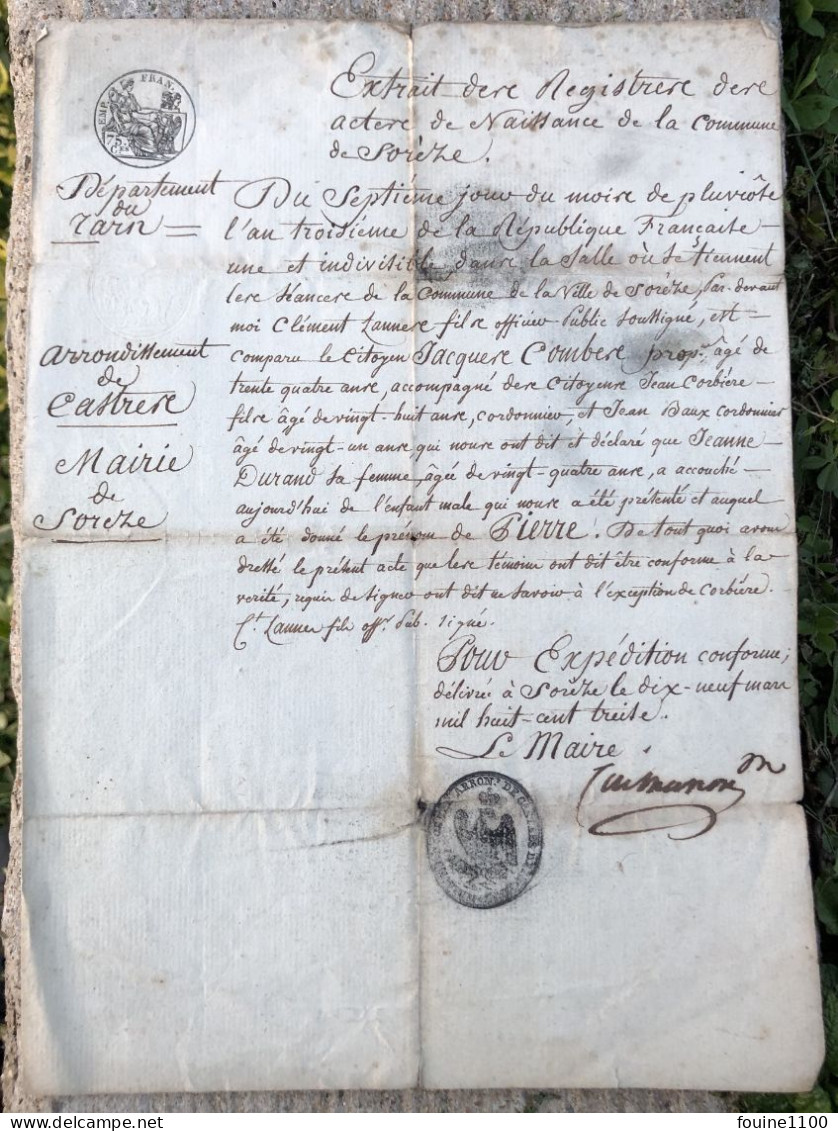 EMP. FRAN.
Extrait des Registres des
actes de Naissance de la Commune
de Sorèze.
Département
du
Tarn
Arrondissement
de
Castres
Mairie
de
Sorèze
Du Septième jour du mois de pluviôse
l'an troisième de la République Française
une et indivisible, dans la Salle où se tiennent
les séances de la Commune de la Ville de Sorèze, Par-devant
moi Clément Lannes fils officier Public Soussigné, est
comparu le Citoyen Jacques Combes prop.re âgé de
trente quatre ans, accompagné des Citoyens Jean Corbière
fils âgé de vingt-huit ans, cordonnier, et Jean Baux cordonnier
âgé de vingt-un ans qui nous ont dit et déclaré que Jeanne
Durand sa femme, âgée de vingt-quatre ans, a accouché
aujourd'hui de l'enfant male qui nous a été présenté et auquel
a été donné le prénom de Pierre. De tout quoi avons
dressé le présent acte que les témoins ont dit être conforme à la
verité, requis de signer ont dit ne savoir à l'exception de Corbière.
C.t Lannes fils off.r Pub. signé.
Pour Expédition conforme;
délivré à Sorèze le dix-neuf mars
mil huit-cent treise.
Le Maire.
ARRON.T DE CASTRES
delcampe.net
fouine1100